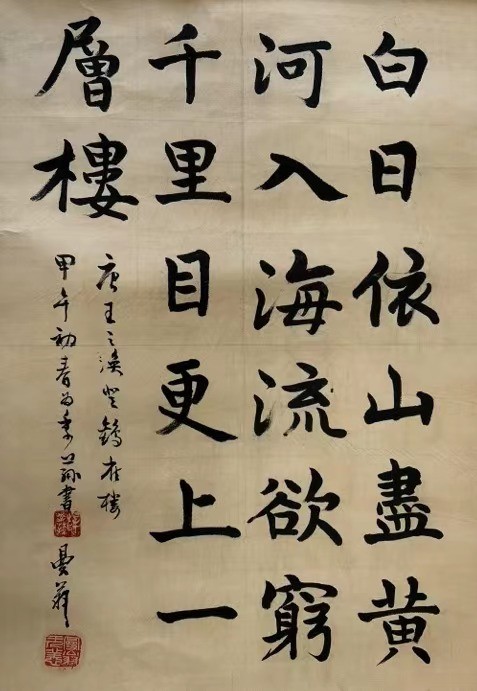 白日依山盡黃
河入海流欲窮
千里目更上一
層樓
唐王之渙登鸛雀樓
甲午初春
書